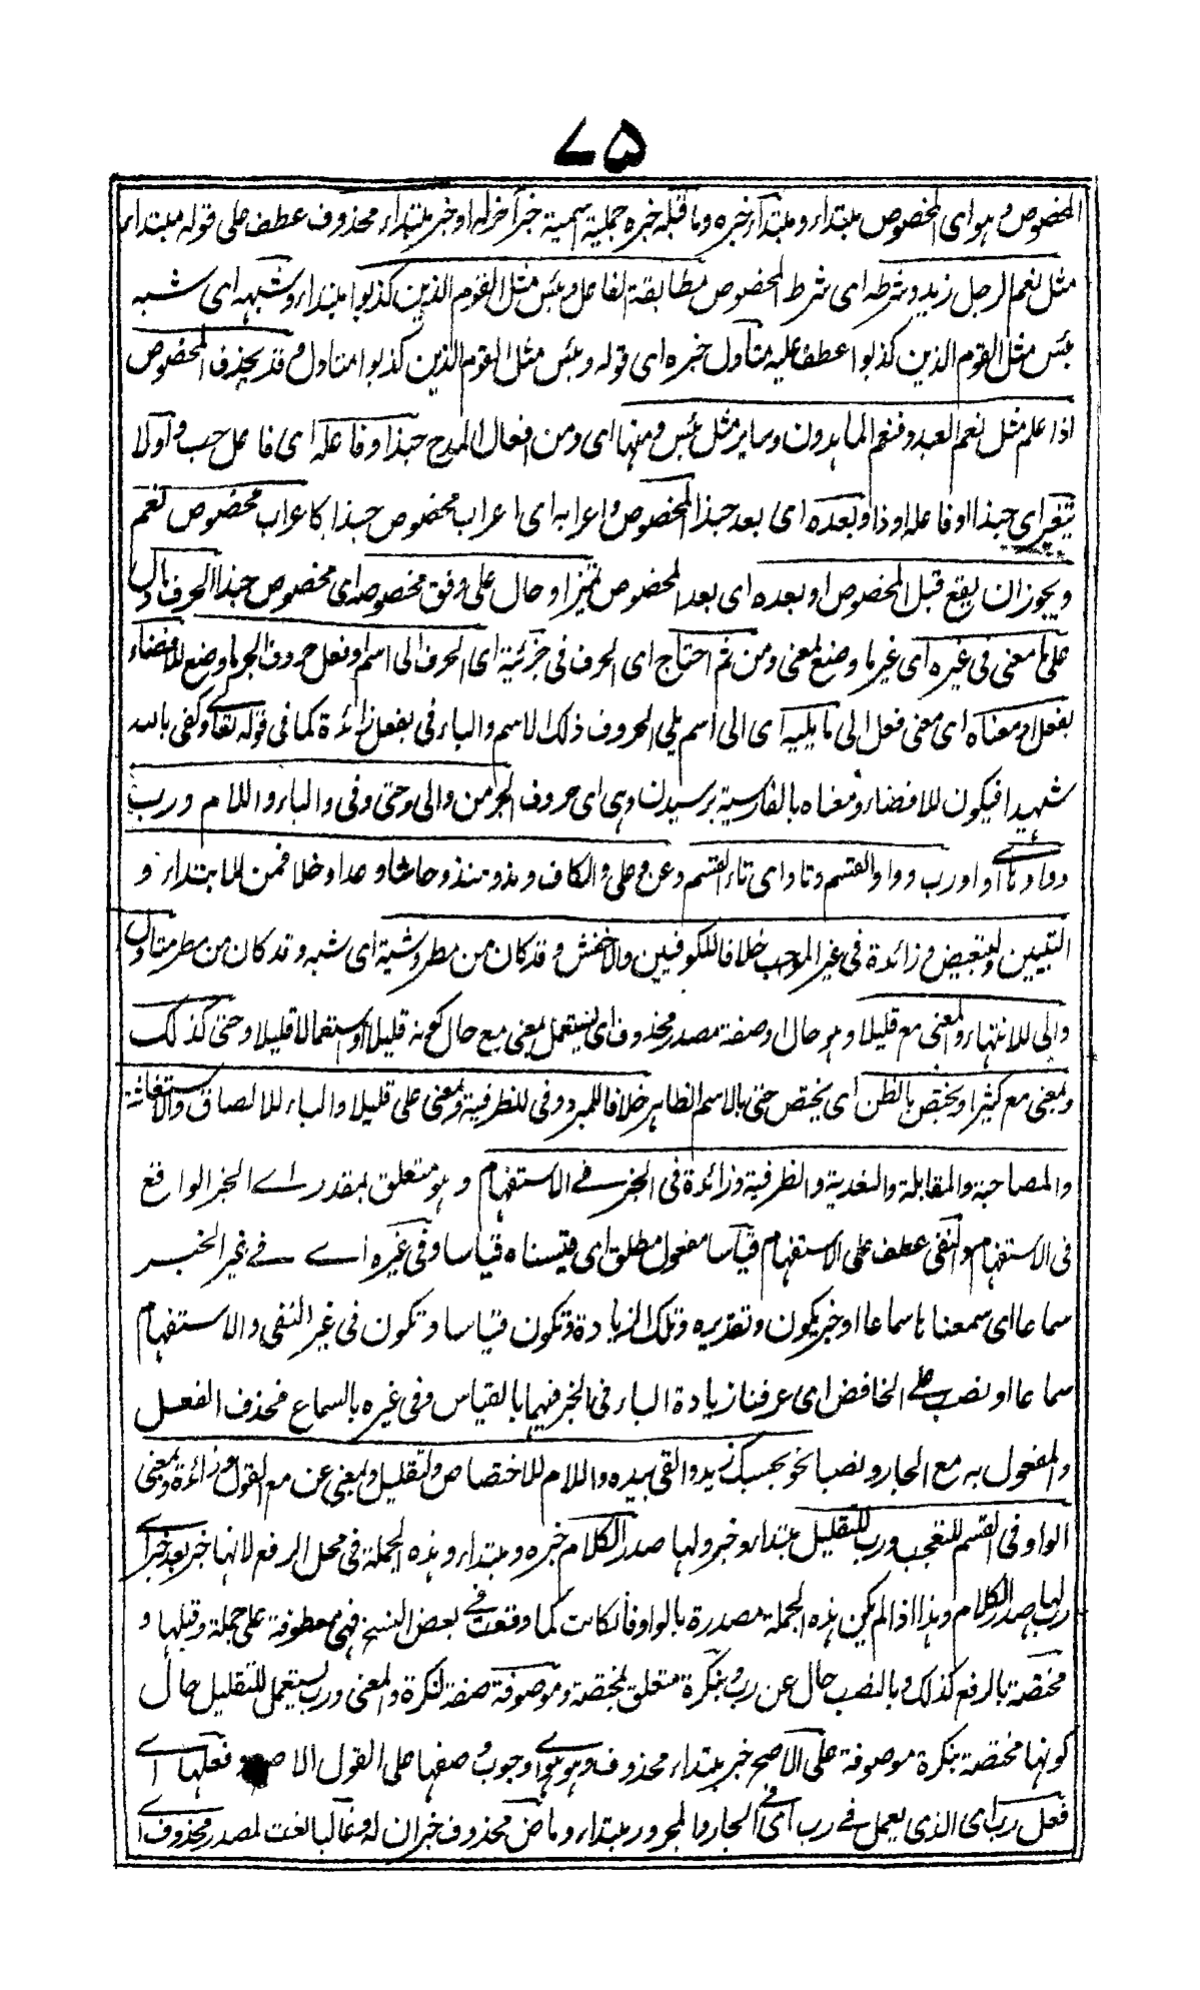 ٧٥
المخصوص وهو اى المخصوص مبتداء ومبتداء خبره وما قبله خبره جملية اسمية خبرا خر له او خبر مبتداء محذوف عطف على قوله مبتداء
مثل نعم الرجل زيد وشرطه اى شرط المخصوص مطابقة الفاعل وبئس مثل القوم الذين كذبوا مبتداء وشبهه اى شبه
بئس مثل القوم الذين كذبوا عطف عليه متأول خبره اى قوله وبئس مثل القوم الذين كذبوا متاول وقد يحذف المخصوص
اذا علم مثل نعم العبد وفنعم الماهدون وساء مثل بئس ومنها اى ومن افعال المدح حبذا وفاعله اى فاعل حب ذا ولا
يتغير اى حبذا او فاعله او ذا وبعده اى بعد حبذا المخصوص واعرابه اى اعراب مخصوص حبذا كاعراب مخصوص نعم
ويجوز ان يقع قبل المخصوص او بعده اى بعد المخصوص تميز او حال على وفق مخصوصه اى مخصوص حبذا الحرف ما دل
على معنى فى غيره اى غير ما وضع لمعنى ومن ثم احتاج اى الحرف فى جزئية اى الحرف الى اسم او فعل حروف الجر ما وضع للافضاء
بفعل او معناه اى معنى فعل الى ما يليه اى الى اسم يلى الحروف ذلك الاسم والباء فى بفعل زائدة كما فى قوله تعالى وكفى بالله
شهيدا فيكون للافضاء ومعناه بالفارسية برسيدن وهى اى حروف الجر من والى وحتى وفى والباء واللام ورب
وواوها اى واو رب وواو القسم وتاؤه اى تاء القسم وعن وعلى والكاف ومذ ومنذ وحاشا وعدا وخلا فمن للابتداء و
التبيين والتبعيض وزائدة فى غير الموجب خلافا للكوفيين والاخفش وقد كان من مطر وشبهه اى شبه وقد كان من مطر متاول
والى للانتهاء وبمعنى مع قليلا وهو حال او صفة مصدر محذوف اى يستعمل بمعنى مع حال كونه قليلا او استعمالا قليلا وحتى كذلك
وبمعنى مع كثيرا ويختص بالظن اى يختص حتى بالاسم الظاهر خلافا للمبرد وفى للظرفية وبمعنى على قليلا والباء للالصاق والاستعانة
والمصاحبة والمقابلة والتعدية والظرفية وزائدة فى الخبر فى الاستفهام وهو متعلق بمقدر اى الخبر الواقع
فى الاستفهام والنفى عطف على الاستفهام قياسا مفعول مطلق اى قيسناه قياسا وفى غيره اى فى غير الخبر
سماعا اى سمعناها سماعا او خبر يكون وتقديره وتلك الزيادة تكون قياسا وتكون فى غير النفى والاستفهام
سماعا او نصب على الخافض اى عرفنا زيادة الباء فى الخبر فيهما بالقياس وفى غيره بالسماع فحذف الفعل
والمفعول به مع الجار ونصبا نحو بحسبك زيد والقى بيده واللام للاختصاص والتعليل وبمعنى عن مع القول وزائدة وبمعنى
الواو فى القسم للتعجب ورب للتقليل مبتداء وخبر ولها صدر الكلام خبره ومبتداء وهذه الجملة فى محل الرفع لانها خبر بعد خبر اى
رب لها صدر الكلام وهذا اذا لم يكن هذه الجملة مصدرة بالواو فان كانت كما وقعت فى بعض النسخ فهى معطوفة على جملة وقبلها و
مختصة بالرفع كذلك وبالنصب حال عن رب وبنكرة متعلق بمختصة وموصوفة صفة لنكرة والمعنى ورب يستعمل للتقليل حال
كونها مختصة بنكرة موصوفة على الاصح خبر مبتداء محذوف وهو هو اى وجوب وصفها على القول الاصح وفعلها اى
فعل رب اى الذى يعمل فى رب اى فى الجار والمجرور مبتداء وماض محذوف خبران له وغالبا نعت لمصدر محذوف اى